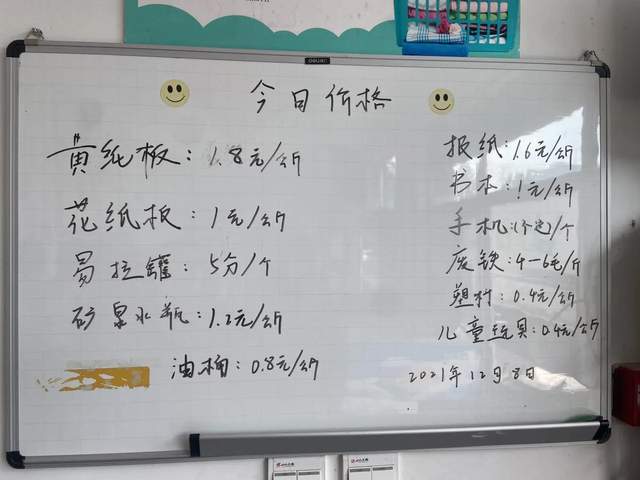 今日价格
黄纸板：1.8元/公斤
花纸板：1元/公斤
易拉罐：5分/个
矿泉水瓶：1.2元/公斤
油桶：0.8元/公斤
报纸：1.6元/公斤
书本：1元/公斤
手机：(不定)/个
废铁：4-6毛/斤
塑料：0.4元/公斤
儿童玩具：0.4元/公斤
2021年12月8日